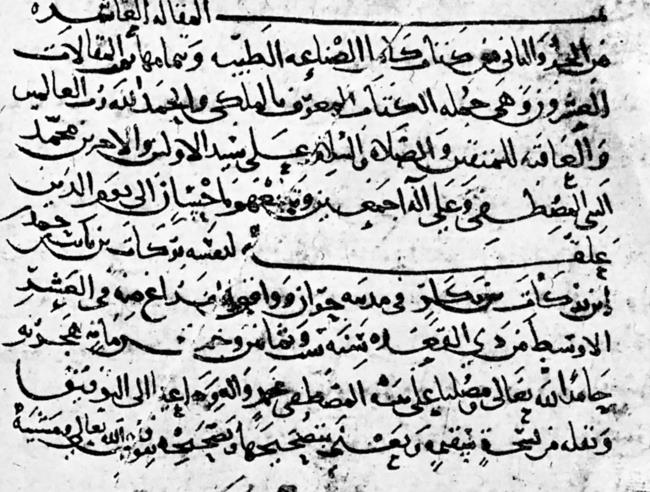 تمت المقاله العاشره
من الجزو الثاني من كتاب كامل الصناعه الطبيه وبتمامها تم المقالات
العشرون وهي جمله الكتاب المعروف بالملكي والحمد لله رب العالمين
والعاقبه للمتقين والصلاه والسلام على سيد الاولين والاخرين محمد
النبي المصطفى وعلى اله اجمعين وتابعيهم باحسان الى يوم الدين
علقه لنفسه بركات بن ثابت
ابن بركات في مدينه حران ووافق الفراغ منه في العشر
الاوسط من ذي القعده سنه ست وثمانين وخمس مايه هجريه
حامدا لله تعالى ومصليا على نبيه المصطفى محمد واله
ونقله من نسخة سقيمه بتصحيحها وتصحيحه الله تعالى ومشيته